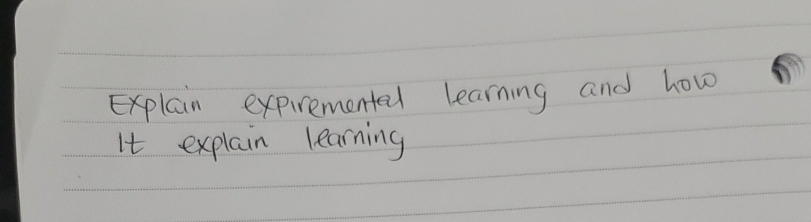 Explain expiremental learning and how
It explain learning